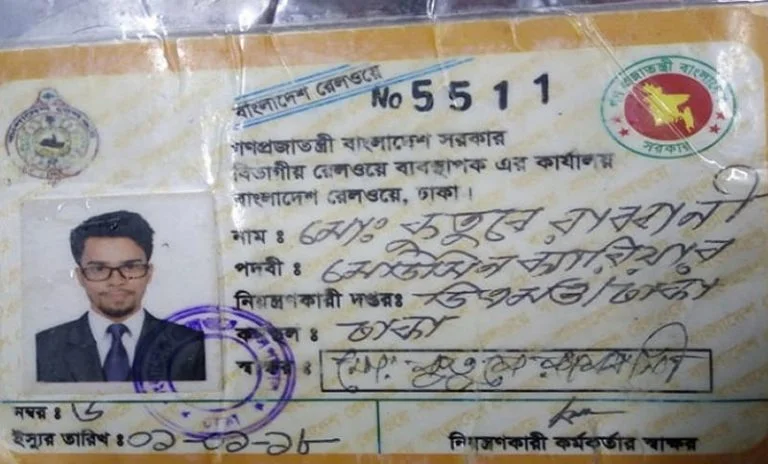 বাংলাদেশ রেলওয়ে
No 5511
গণপ্রজাতন্ত্রী বাংলাদেশ
সরকার
গণপ্রজাতন্ত্রী বাংলাদেশ সরকার
বিভাগীয় রেলওয়ে ব্যবস্থাপক এর কার্যালয়
বাংলাদেশ রেলওয়ে, ঢাকা।
নাম ঃ মোঃ কুতুবে রাব্বানী
পদবী ঃ মেডিসিন ক্যারিয়ার
নিয়ন্ত্রণকারী দপ্তরঃ ডিএমও/ঢাকা
ঃ ঢাকা
নম্বর ঃ ৬
ইস্যুর তারিখ ঃ ০১-০১-১৮
নিয়ন্ত্রণকারী কর্মকর্তার স্বাক্ষর